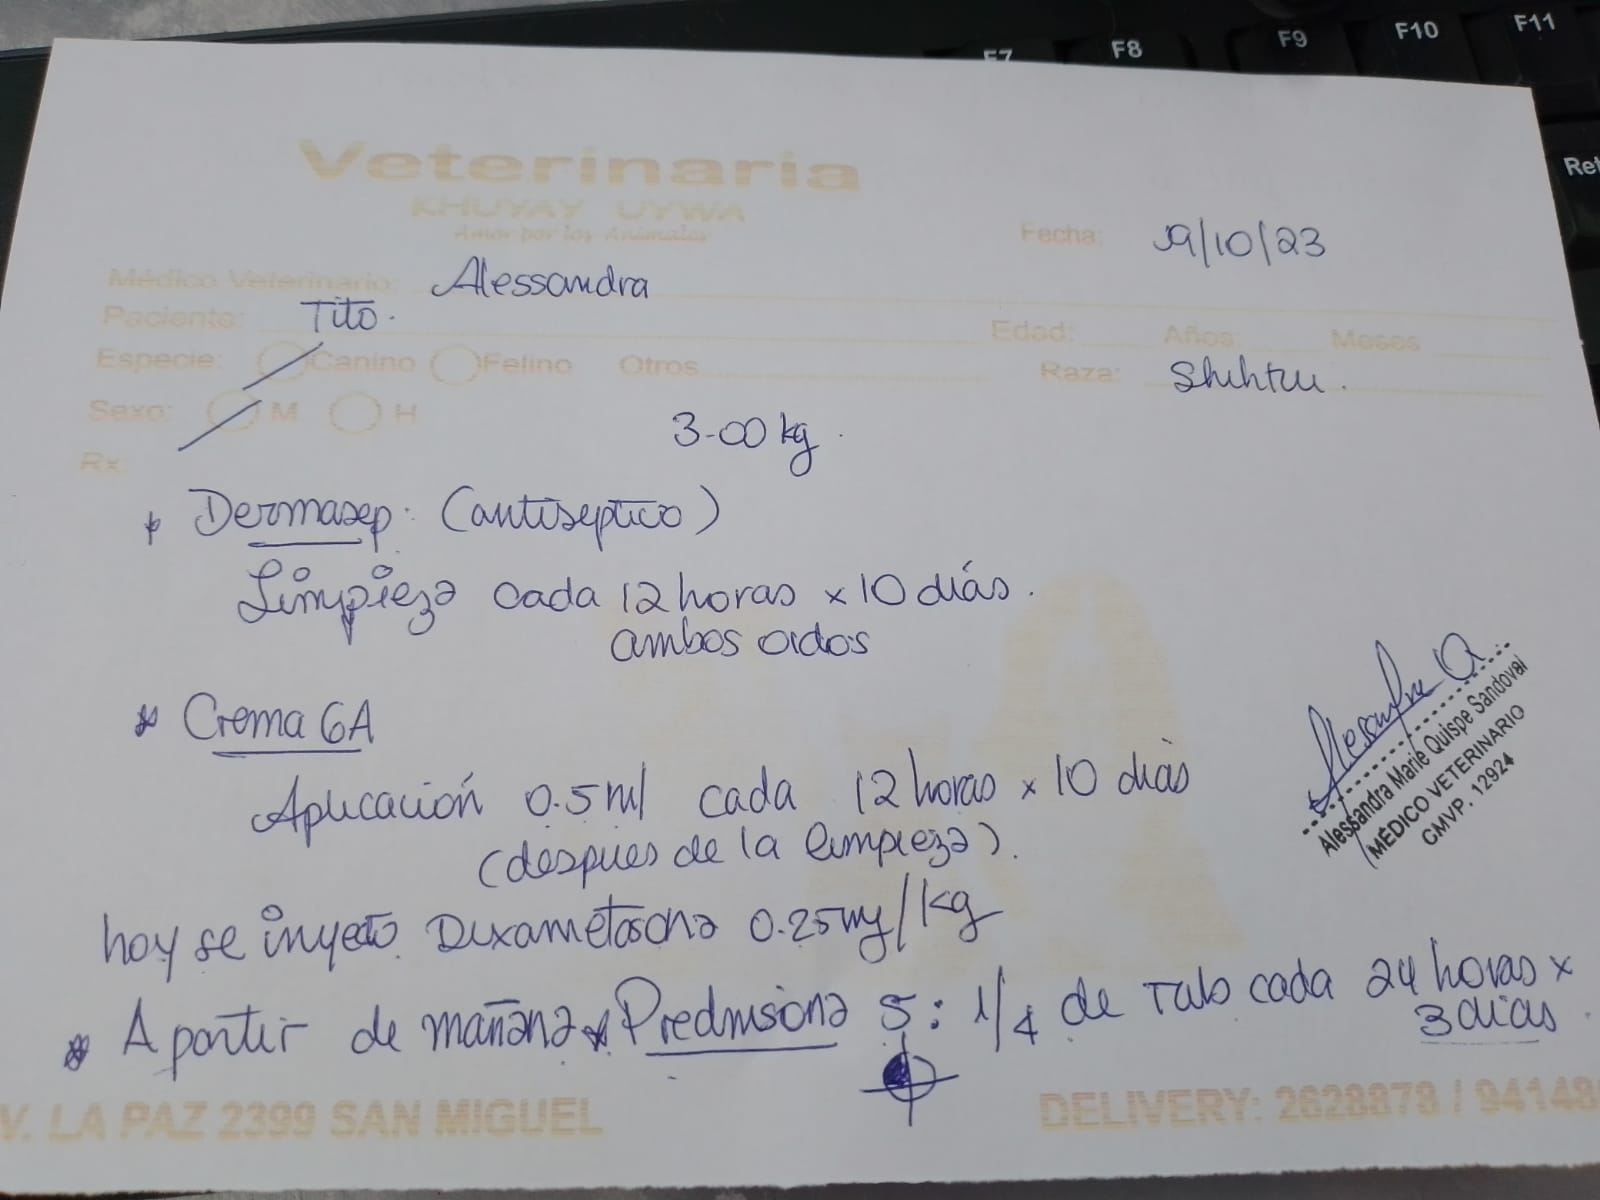 F7 F8 F9 F10 F11
Ret
Veterinaria
KHUYAY UYWA
Amor por los Animales
Fecha: 19/10/23
Médico Veterinario: Alessandra
Paciente: Tito. Edad: Años: Meses
Especie: Canino Felino Otros Raza: Shihtzu.
Sexo: M H
3-00 kg.
Rx:
* Dermasep: (antiseptico)
Limpieza cada 12 horas x 10 dias.
ambos oidos
* Crema 6A
Aplicación 0.5 ml cada 12 horas x 10 dias
(despues de la limpieza).
Alessandra Q
Alessandra Marie Quispe Sandoval
MÉDICO VETERINARIO
CMVP. 12924
hoy se inyecto Dexametasona 0.25mg/kg
* A partir de mañana * Prednisona 5: 1/4 de tab cada 24 horas x
3 dias.
V. LA PAZ 2399 SAN MIGUEL DELIVERY: 2628878 / 94148